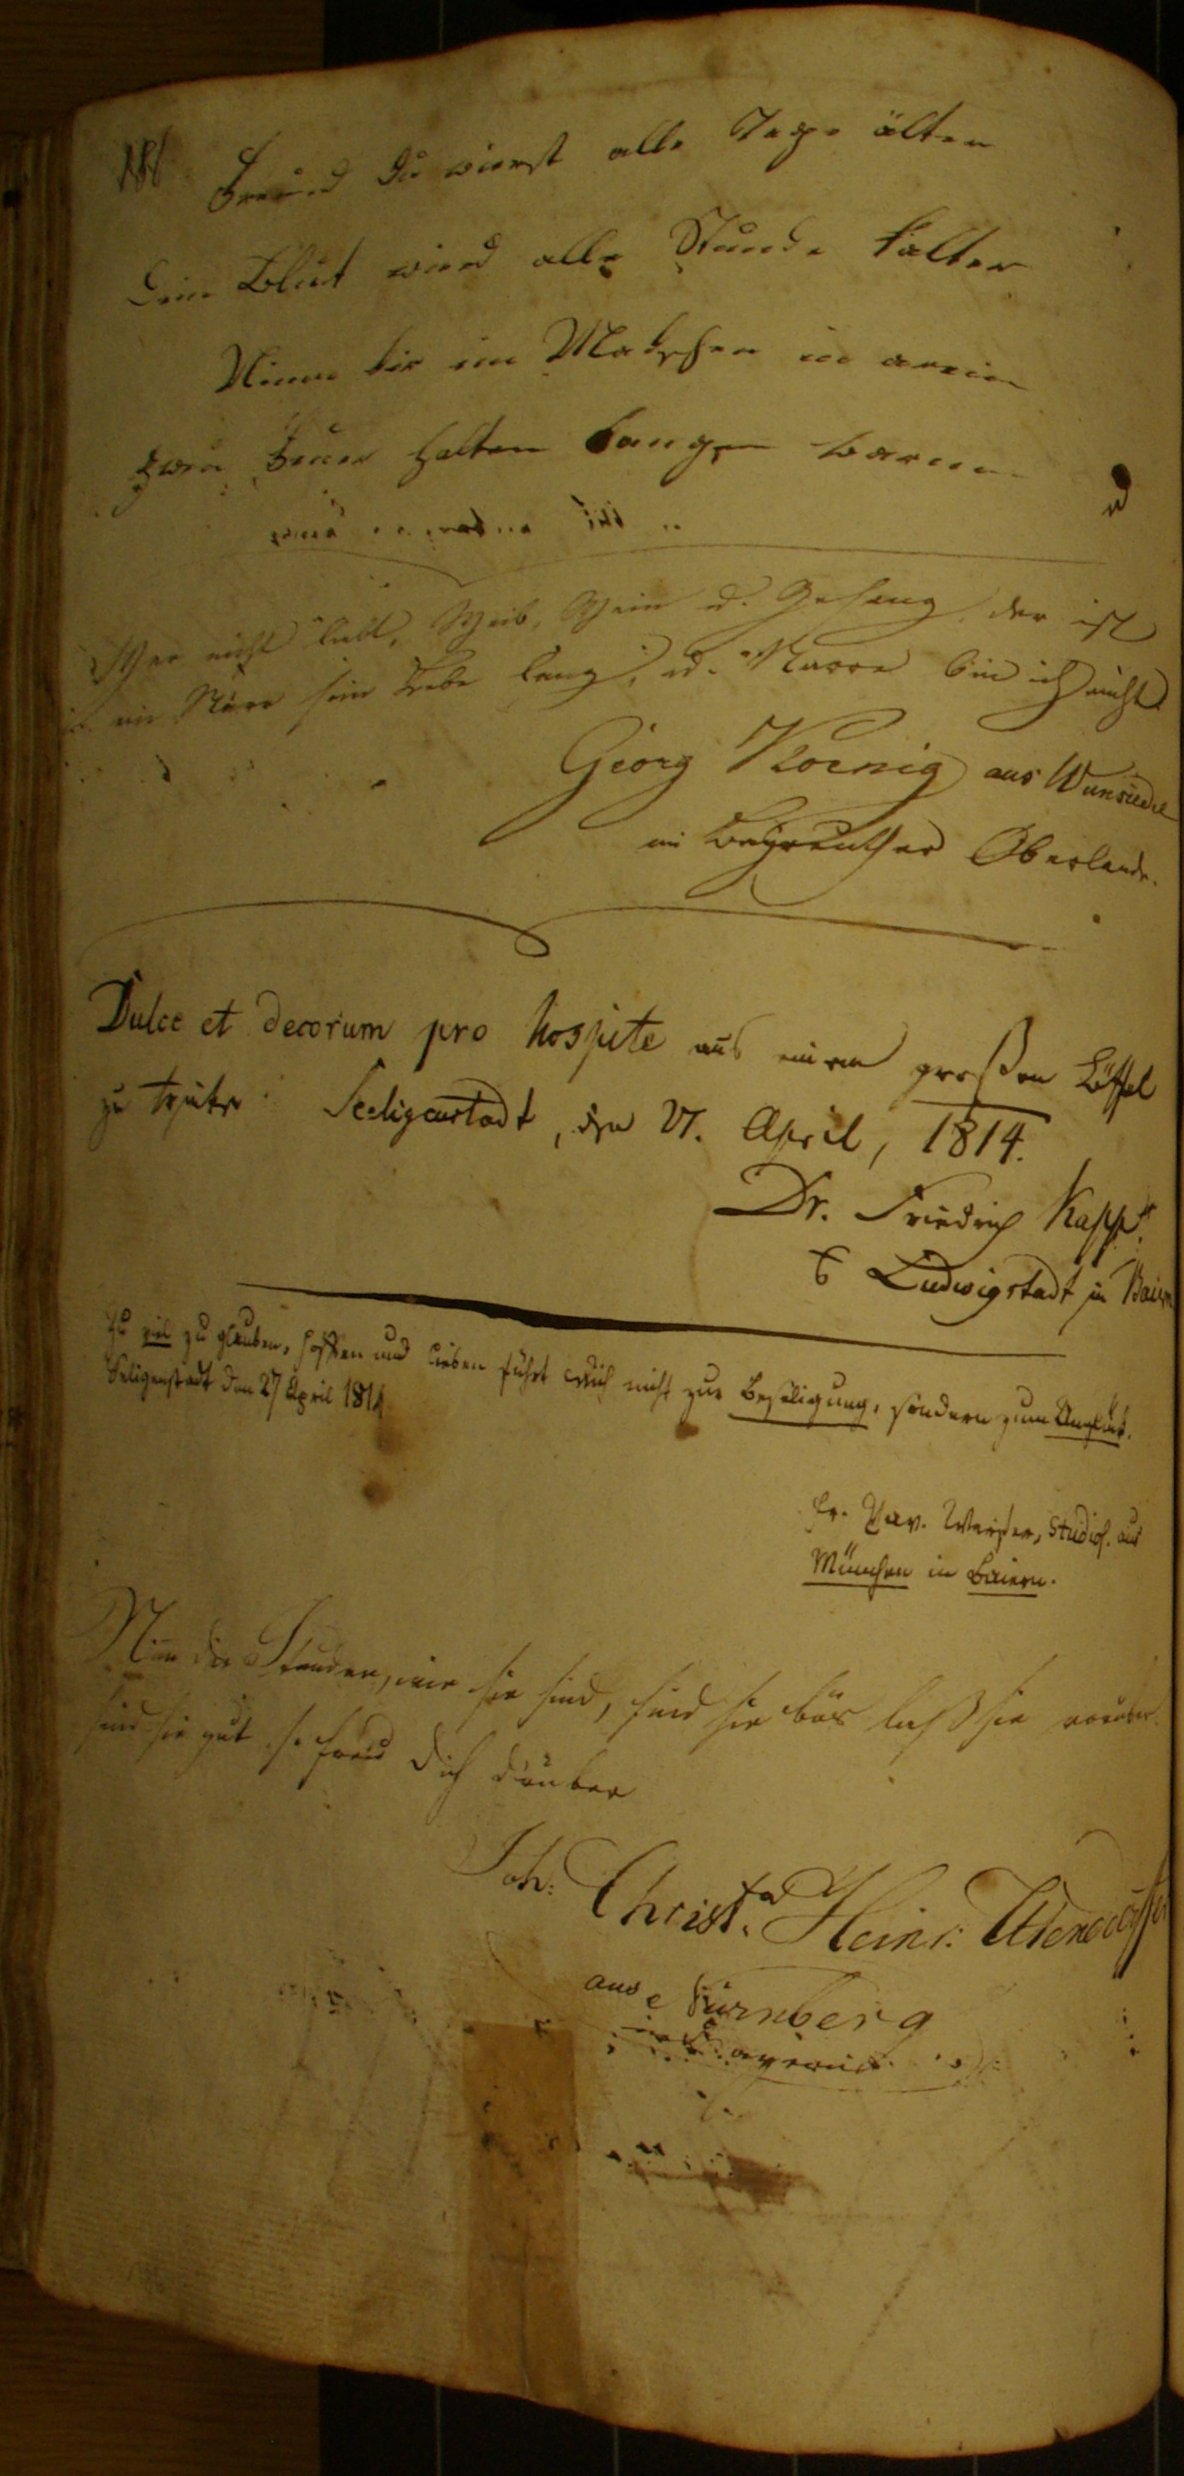 186 Freund du wirst alle Tage älter
Dein Blut wird alle Stunde kälter
Nimm dir ein Mädchen in
zwei Feuer halten lange warm
Wer nicht liebt, Weib, Wein u. Gesang, der ist
ein Narr sein Lebe lang, u. Narre bin ich nicht
Georg Koenig aus Wunsiedel
im Bayreuther Oberlande.
Dulce et decorum pro hospite aus einem großen Löffel
zu trinken. Seeligenstadt, den 27. April, 1814.
Dr. Friedrich Kapp.
Ludwigstadt in Baiern
Zu viel zu glauben, hoffen und lieben führt nicht zur Beseligung, sondern zum
Seligenstadt den 27 April 1814.
Fr. Xav. Studios. aus
München in Baiern.
Nim die Stunden, wie sie sind, sind sie bös laß sie vorüber
sind sie gut so freu dich drüber
Joh: Christ. Heinr:
aus Nürnberg